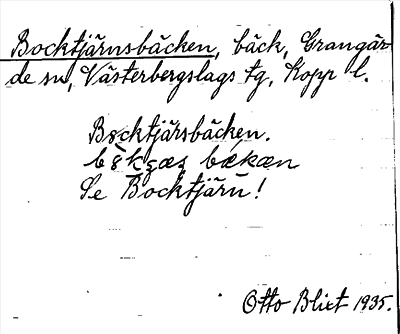 Bocktjärnsbäcken, bäck, Grangär-
de sn, Västerbergslags tg, Kopp l.
Bocktjärsbäcken.
bækæn
Se Bocktjärn!
Otto Blixt 1935.